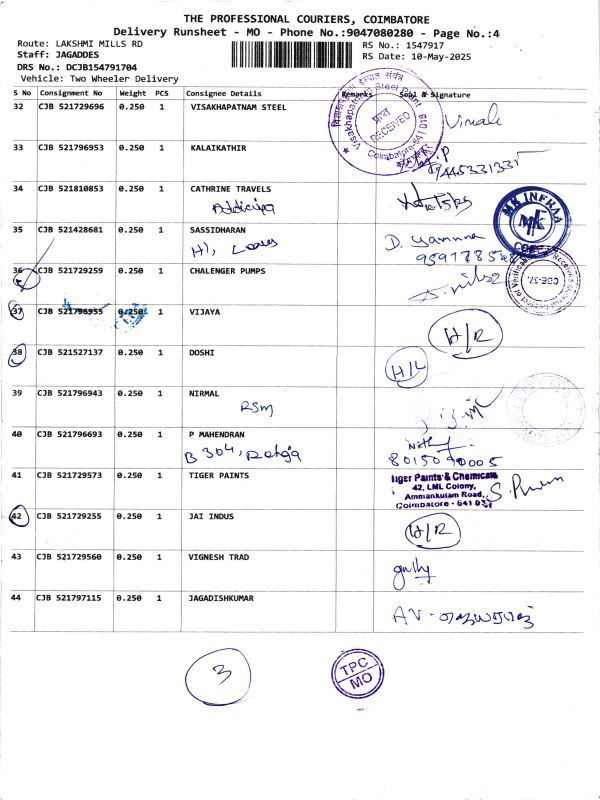 THE PROFESSIONAL COURIERS, COIMBATORE
Delivery Runsheet - MO - Phone No.:9047080280 - Page No.:4
Route: LAKSHMI MILLS RD
RS No.: 1547917
Staff: JAGADDES
RS Date: 10-May-2025
DRS No.: DCJB154791704
Vehicle: Two Wheeler Delivery
S No Consignment No Weight PCS Consignee Details Remarks Seal & Signature
32 CJB 521729696 0.250 1 VISAKHAPATNAM STEEL
Visakhapatnam Steel Plant
प्राप्त
RECEIVED
33 CJB 521796953 0.250 1 KALAIKATHIR
9445331335
34 CJB 521810853 0.250 1 CATHRINE TRAVELS
MK INFRAA
MK
35 CJB 521428681 0.250 1 SASSIDHARAN
D. Yamuna
36 CJB 521729259 0.250 1 CHALENGER PUMPS
CBE-37.
37 CJB 521796955 0.250 1 VIJAYA
H/R
38 CJB 521527137 0.250 1 DOSHI
H/L
39 CJB 521796943 0.250 1 NIRMAL
RSM
40 CJB 521796693 0.250 1 P MAHENDRAN
B 304,
8015090005
41 CJB 521729573 0.250 1 TIGER PAINTS
Tiger Paints & Chemicals
42, LML Colony,
Ammankulam Road,
Coimbatore - 641 037
42 CJB 521729255 0.250 1 JAI INDUS
H/R
43 CJB 521729560 0.250 1 VIGNESH TRAD
44 CJB 521797115 0.250 1 JAGADISHKUMAR
3
TPC
MO